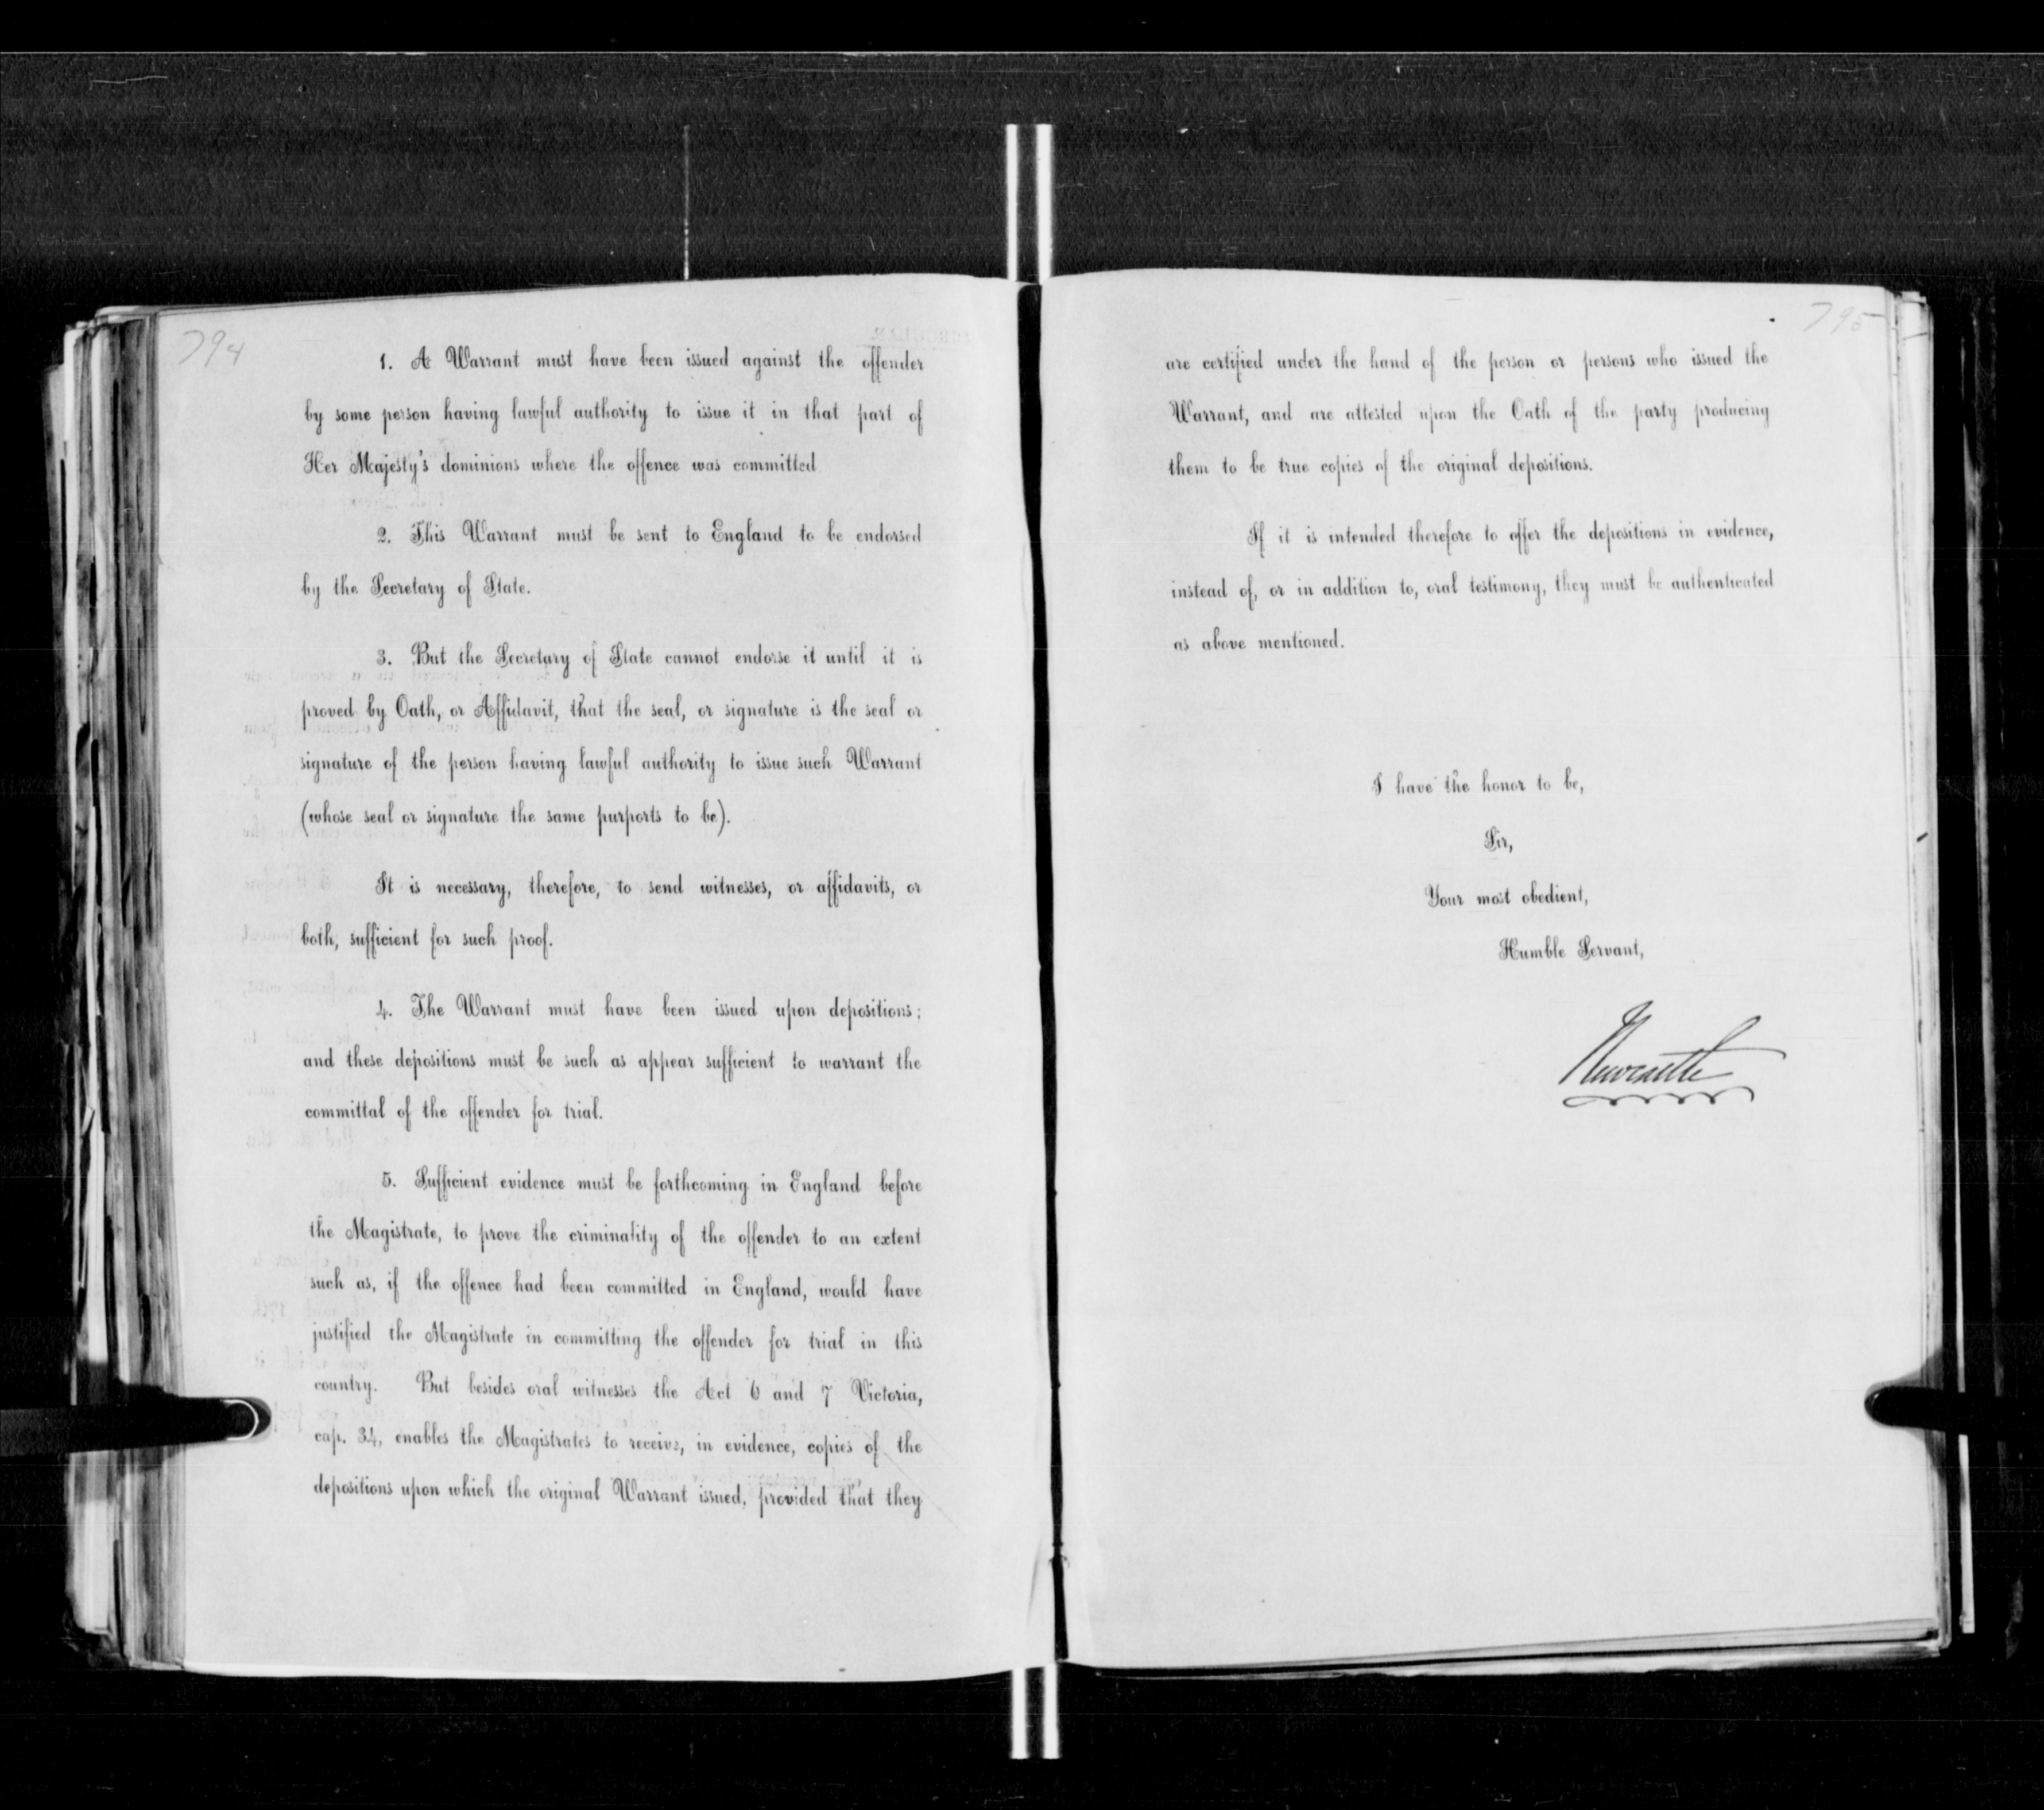 794
1. A Warrant must have been issued against the offender
by some person having lawful authority to issue it in that part of
Her Majesty's dominions where the offence was committed
2. This Warrant must be sent to England to be endorsed
by the Secretary of State.
3. But the Secretary of State cannot endorse it until it is
proved by Oath, or Affidavit, that the seal, or signature is the seal or
signature of the person having lawful authority to issue such Warrant
(whose seal or signature the same purports to be).
It is necessary, therefore, to send witnesses, or affidavits, or
both, sufficient for such proof.
4. The Warrant must have been issued upon depositions;
and these depositions must be such as appear sufficient to warrant the
committal of the offender for trial.
5. Sufficient evidence must be forthcoming in England before
the Magistrate, to prove the criminality of the offender to an extent
such as, if the offence had been committed in England, would have
justified the Magistrate in committing the offender for trial in this
country. But besides oral witnesses the Act 6 and 7 Victoria,
cap. 34, enables the Magistrates to receive, in evidence, copies of the
depositions upon which the original Warrant issued, provided that they
795
are certified under the hand of the person or persons who issued the
Warrant, and are attested upon the Oath of the party producing
them to be true copies of the original depositions.
If it is intended therefore to offer the depositions in evidence,
instead of, or in addition to, oral testimony, they must be authenticated
as above mentioned.
I have the honor to be,
Sir,
Your most obedient,
Humble Servant,
Newcastle